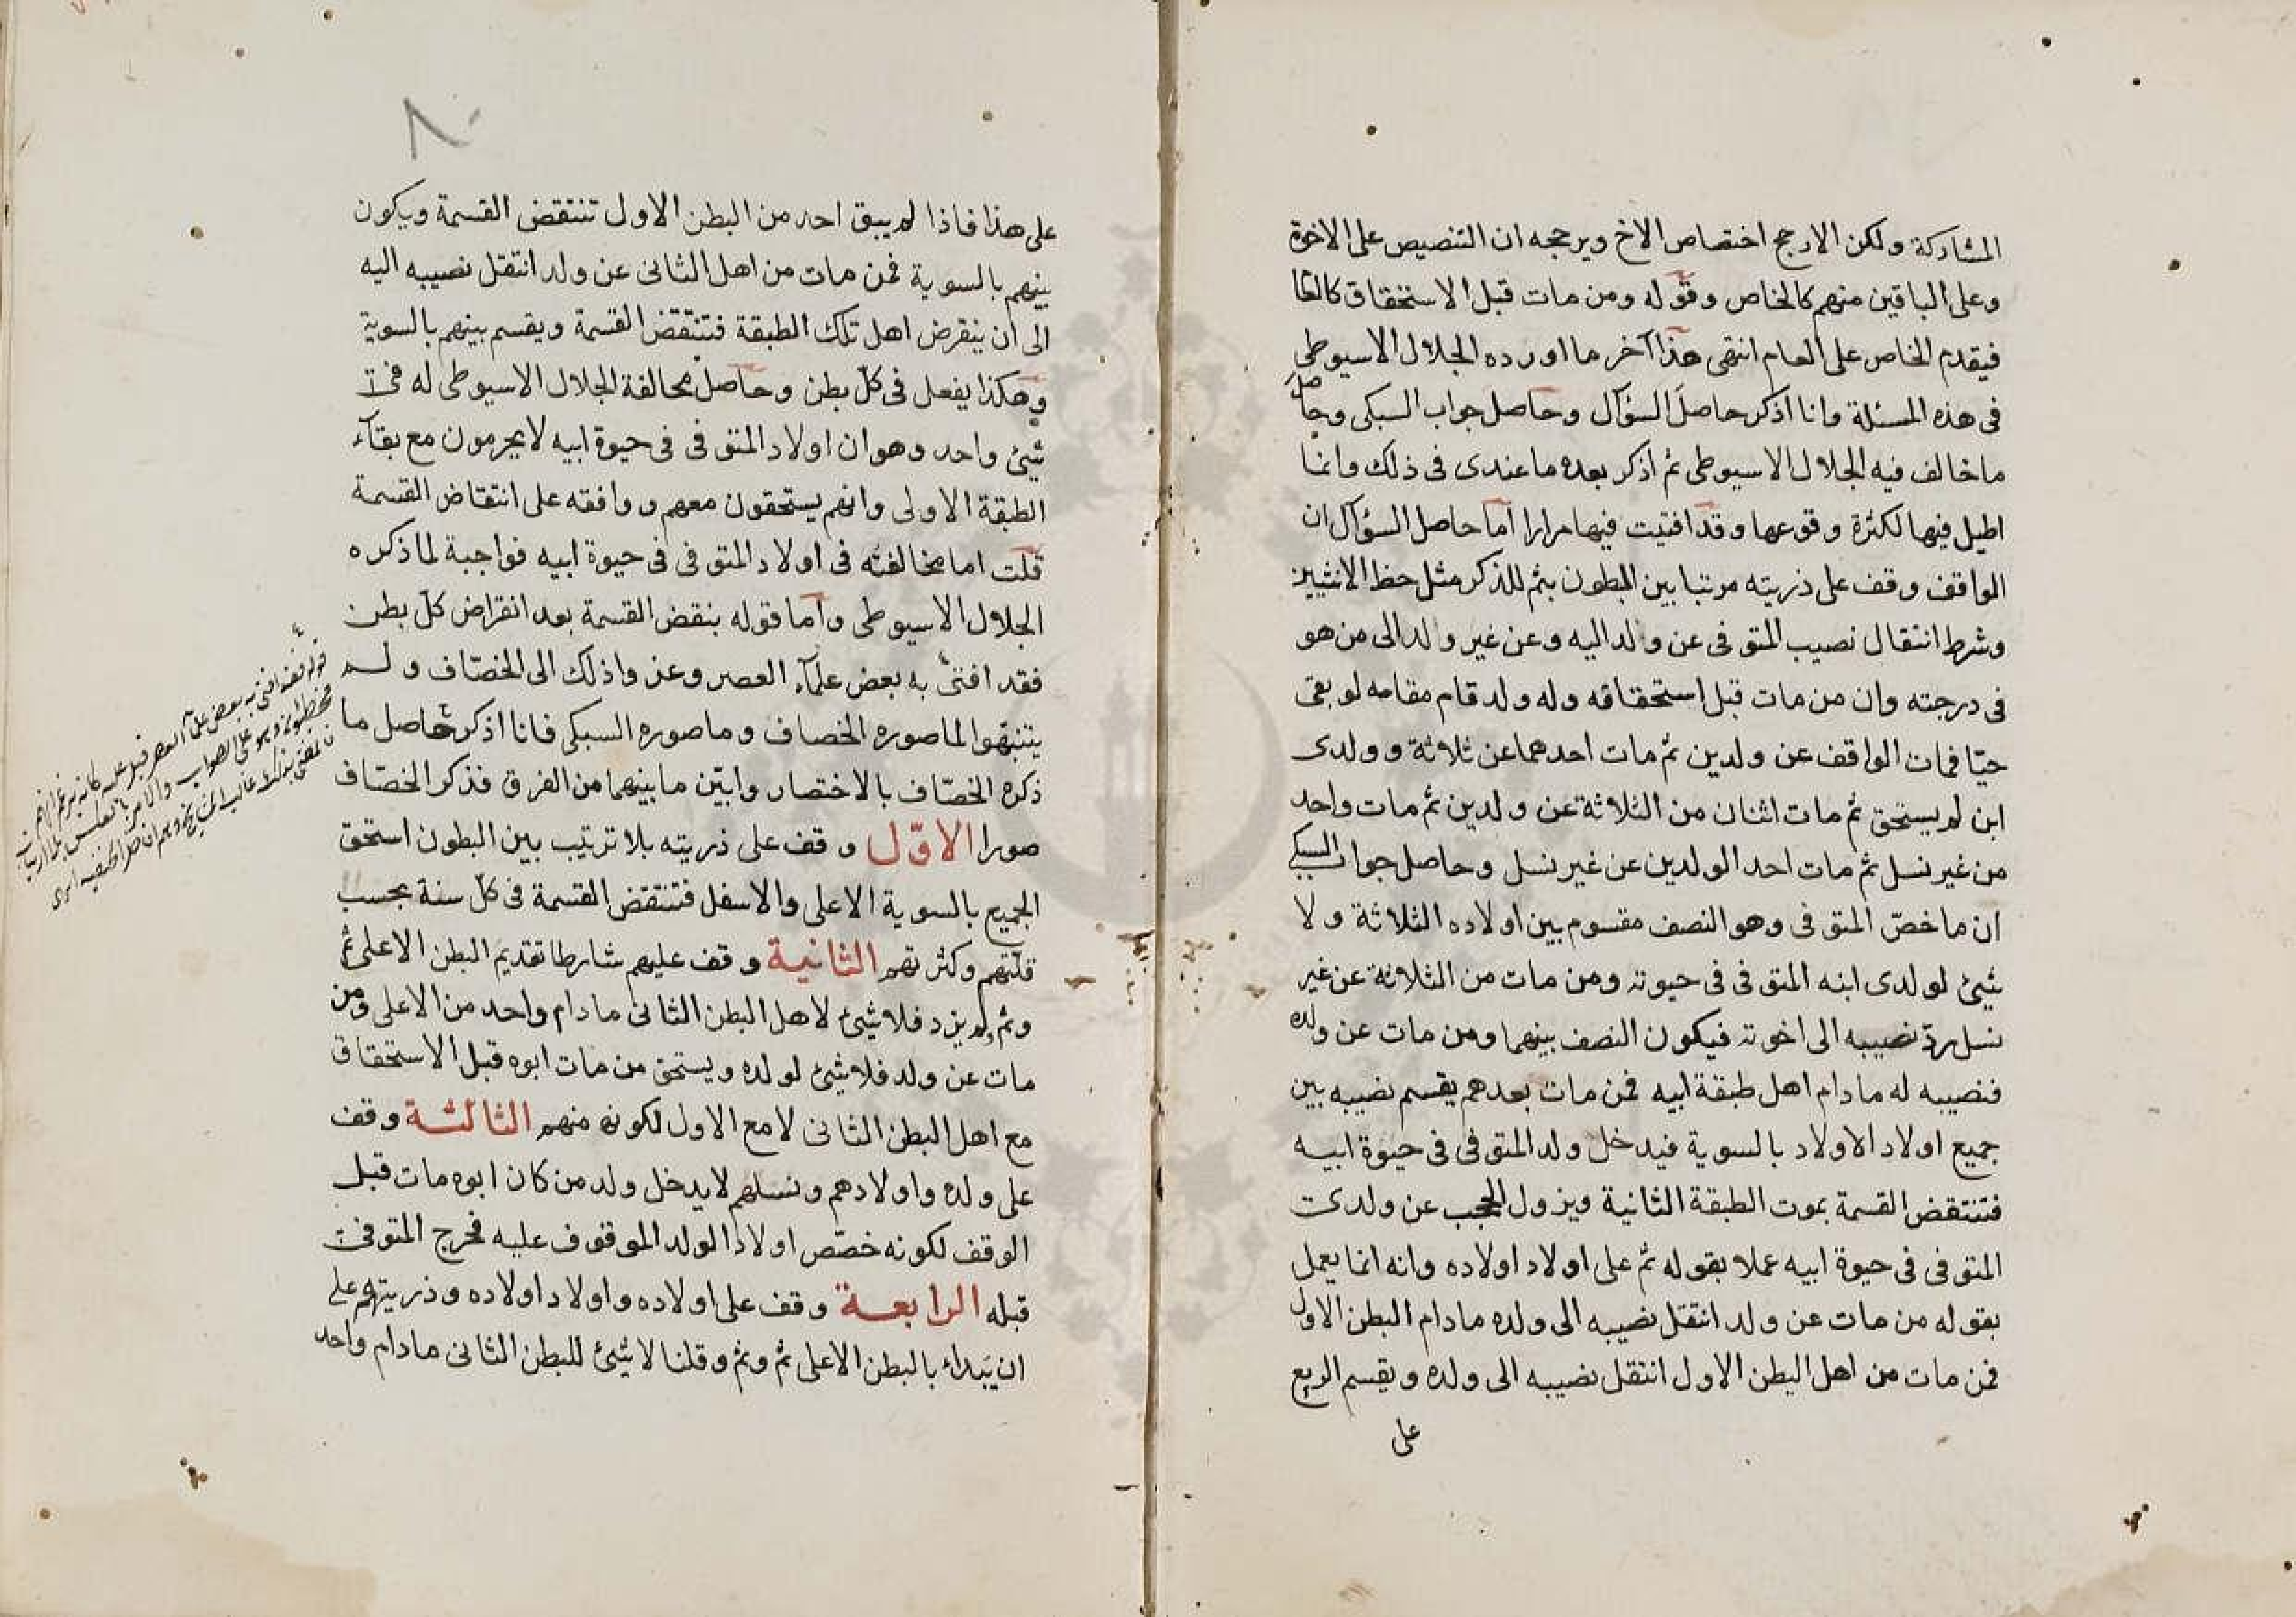 المشاركة ولكن الارجح اختصاص الاخ ويرجحه ان التنصيص على الاخوة
وعلى الباقين منهم كالخاص وقوله ومن مات قبل الاستحقاق كالعا
فيقدم الخاص على العام انتهى هذا آخر ما اورده الجلال الاسيوطى
فى هذه المسئلة وانا اذكر حاصل السؤآل وحاصل جواب السبكى وحاصل
ما خالف فيه الجلال الاسيوطى ثم اذكر بعده ما عندى فى ذلك وانما
اطيل فيها لكثرة وقوعها وقد افتيت فيها مرارا اما حاصل السؤآل ان
الواقف وقف على ذريته مرتبا بين البطون بثم للذكر مثل حظ الانثيين
وشرط انتقال نصيب المتوفى عن ولد اليه وعن غير ولد الى من هو
فى درجته وان من مات قبل استحقاقه وله ولد قام مقامه لو بقى
حيّا فمات الواقف عن ولدين ثم مات احدهما عن ثلاثة وولدى
ابن لم يستحق ثم مات اثنان من الثلاثة عن ولدين ثم مات واحد
من غير نسل ثم مات احد الولدين عن غير نسل وحاصل جواب السبكى
ان ما خصّ المتوفى وهو النصف مقسوم بين اولاده الثلاثة ولا
شئ لولدى ابنه المتوفى فى حيوته ومن مات من الثلاثة عن غير
نسل ردّ نصيبه الى اخوته فيكون النصف بينهما ومن مات عن ولد
فنصيبه له مادام اهل طبقة ابيه فمن مات بعدهم يقسم نصيبه بين
جميع اولاد الاولاد بالسوية فيدخل ولد المتوفى فى حيوة ابيه
فتنتقض القسمة بموت الطبقة الثانية ويزول الحجب عن ولدى
المتوفى فى حيوة ابيه عملا بقوله ثم على اولاد اولاده وانه انما يعمل
بقوله من مات عن ولد انتقل نصيبه الى ولده مادام البطن الاول
فمن مات من اهل البطن الاول انتقل نصيبه الى ولده ويقسم الريع
على
٨٠
على هذا فاذا لم يبق احد من البطن الاول تنتقض القسمة ويكون
بينهم بالسوية فمن مات من اهل الثانى عن ولد انتقل نصيبه اليه
الى ان ينقرض اهل تلك الطبقة فتنتقض القسمة ويقسم بينهم بالسوية
وهكذا يفعل فى كلّ بطن وحاصل مخالفة الجلال الاسيوطى له فى
شئ واحد وهو ان اولاد المتوفى فى حيوة ابيه لا يحرمون مع بقآء
الطبقة الاولى وانهم يستحقون معهم ووافقه على انتقاض القسمة
قلت اما مخالفته فى اولاد المتوفى فى حيوة ابيه فواجبة لما ذكره
الجلال الاسيوطى واما قوله بنقض القسمة بعد انقراض كلّ بطن
فقد افتى به بعض علمآء العصر وعزوا ذلك الى الخصّاف ولم
يتنبّهوا لما صوره الخصاف وما صوره السبكى فانا اذكر حاصل ما
ذكره الخصّاف بالاختصار وابيّن ما بينهما من الفرق فذكر الخصّاف
صورا الاوّل وقف على ذريته بلا ترتيب بين البطون استحق
الجميع بالسوية الاعلى والاسفل فتنتقض القسمة فى كلّ سنة بحسب
قلّتهم وكثرتهم الثانية وقف عليهم شارطا تقديم البطن الاعلى ثم
وثم ولم يزد فلا شئ لاهل البطن الثانى مادام واحد من الاعلى ومن
مات عن ولد فلا شئ لولده ويستحق من مات ابوه قبل الاستحقاق
مع اهل البطن الثانى لا مع الاول لكونه منهم الثالثة وقف
على ولده واولادهم ونسلهم لا يدخل ولد من كان ابوه مات قبل
الوقف لكونه خصّص اولاد الولد الموقوف عليه فخرج المتوفى
قبله الرابعة وقف على اولاده واولاد اولاده وذريتهم على
ان يبداء بالبطن الاعلى ثم وثم وقلنا لا شئ للبطن الثانى مادام واحد
قوله فقد افتى به بعض علمآء العصر